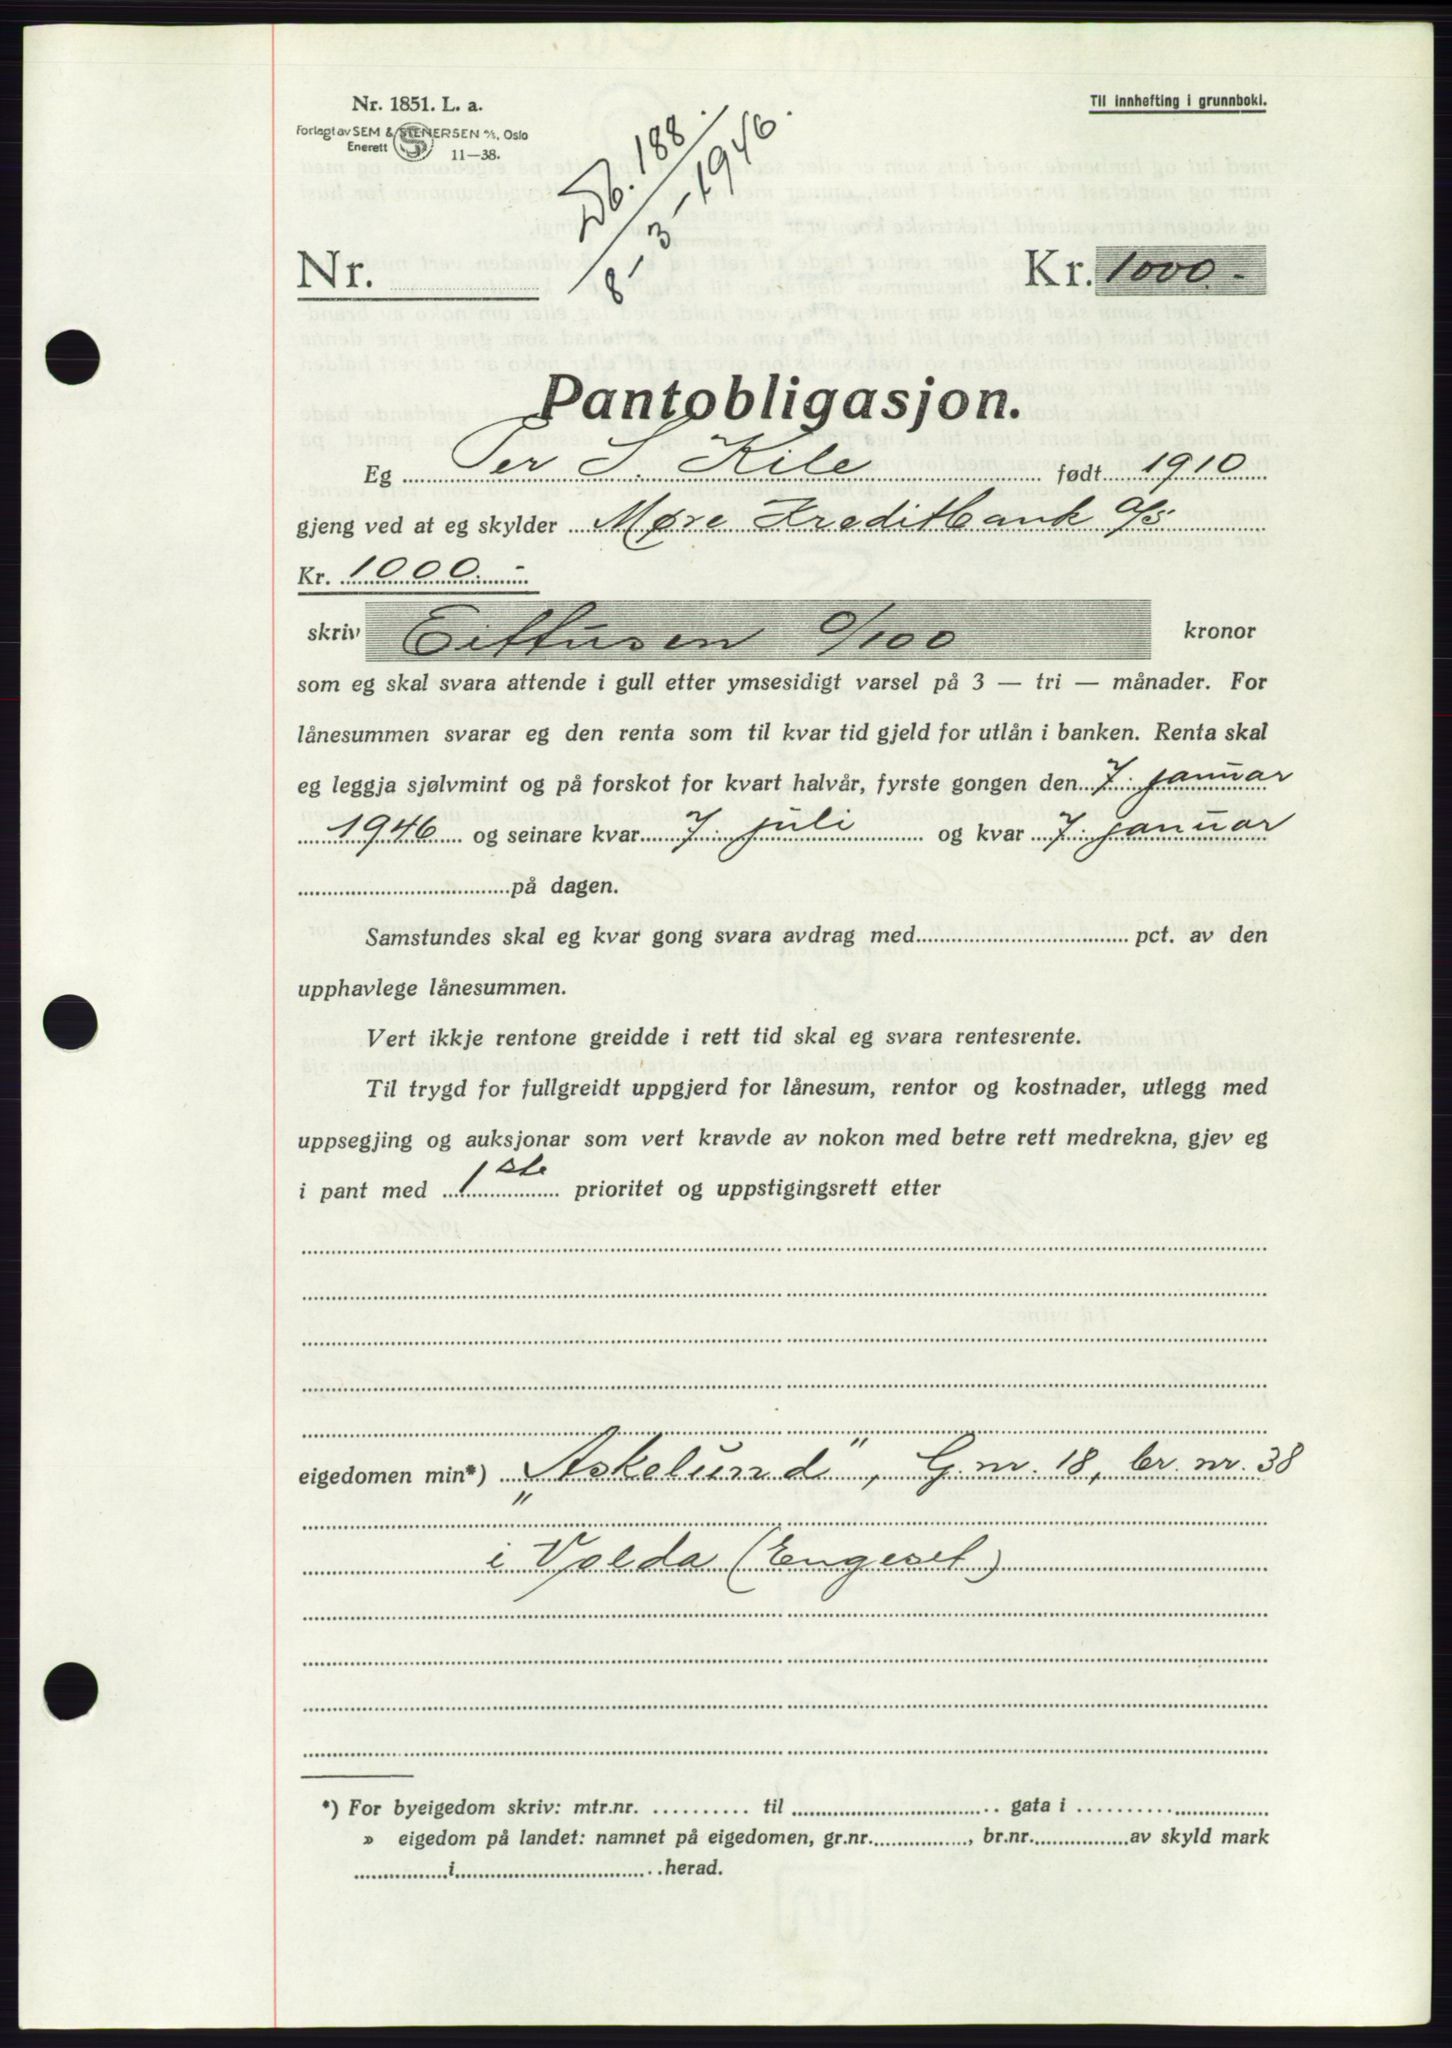 Nr. 1851. L. a.
Til innhefting i grunnbokl.
Forlagt av SEM & STENERSEN A/S, Oslo
Enerett
11—38.
Db. 188.
8 - 3 - 1946.
Nr.
Kr. 1000.-
Pantobligasjon.
Eg Per S. Kile født 1910
gjeng ved at eg skylder Møre Kreditbank a/s
Kr. 1000.-
skriv Eittusen 0/100 kronor
som eg skal svara attende i gull etter ymsesidigt varsel på 3 — tri — månader. For
lånesummen svarar eg den renta som til kvar tid gjeld for utlån i banken. Renta skal
eg leggja sjølvmint og på forskot for kvart halvår, fyrste gongen den 7. januar
1946 og seinare kvar 7. juli og kvar 7. januar
på dagen.
Samstundes skal eg kvar gong svara avdrag med pct. av den
upphavlege lånesummen.
Vert ikkje rentone greidde i rett tid skal eg svara rentesrente.
Til trygd for fullgreidt uppgjerd for lånesum, rentor og kostnader, utlegg med
uppsegjing og auksjonar som vert kravde av nokon med betre rett medrekna, gjev eg
i pant med 1ste prioritet og uppstigingsrett etter
eigedomen min*) „Askelund", G.nr. 18, br. nr. 38
i Volda (Engeset)
*) For byeigedom skriv: mtr.nr. .......... til .......... gata i ..........
» eigedom på landet: namnet på eigedomen, gr.nr. .........., br.nr. .......... av skyld mark
.......... i .......... herad.